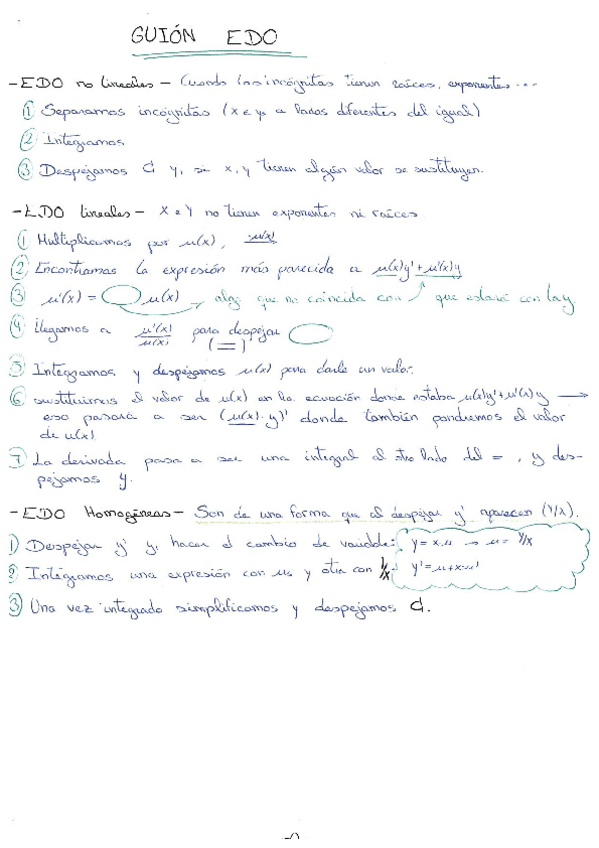 GUIÓN EDO
- EDO no lineales - Cuando las incógnitas tienen raíces, exponentes...
① Separamos incógnitas (x e y, a lados diferentes del igual)
② Integramos
③ Despejamos C y, si x, y tienen algún valor se sustituyen.
- EDO lineales - x e y no tienen exponentes ni raíces
① Multiplicamos por u(x),
② Encontramos la expresión más parecida a u(x)y' + u'(x)y
③ u'(x) = u(x) → algo que no coincida con que estará con la y.
④ llegamos a u'(x)/u(x) para despejar (=)
⑤ Integramos y despejamos u(x) para darle un valor.
⑥ sustituimos el valor de u(x) en la ecuación donde estaba u(x)y'+u'(x)y →
eso pasará a ser (u(x)·y)' donde también pondremos el valor
de u(x)
⑦ La derivada pasa a ser una integral al otro lado del =, y des-
pejamos y.
- EDO Homogéneas - Son de una forma que al despejar y' aparecen (y/x).
① Despejar y' y, hacer el cambio de variable: y = x·u → u = y/x
② Integramos una expresión con us y otra con 1/x. y' = u+x·u'
③ Una vez integrado simplificamos y despejamos C.